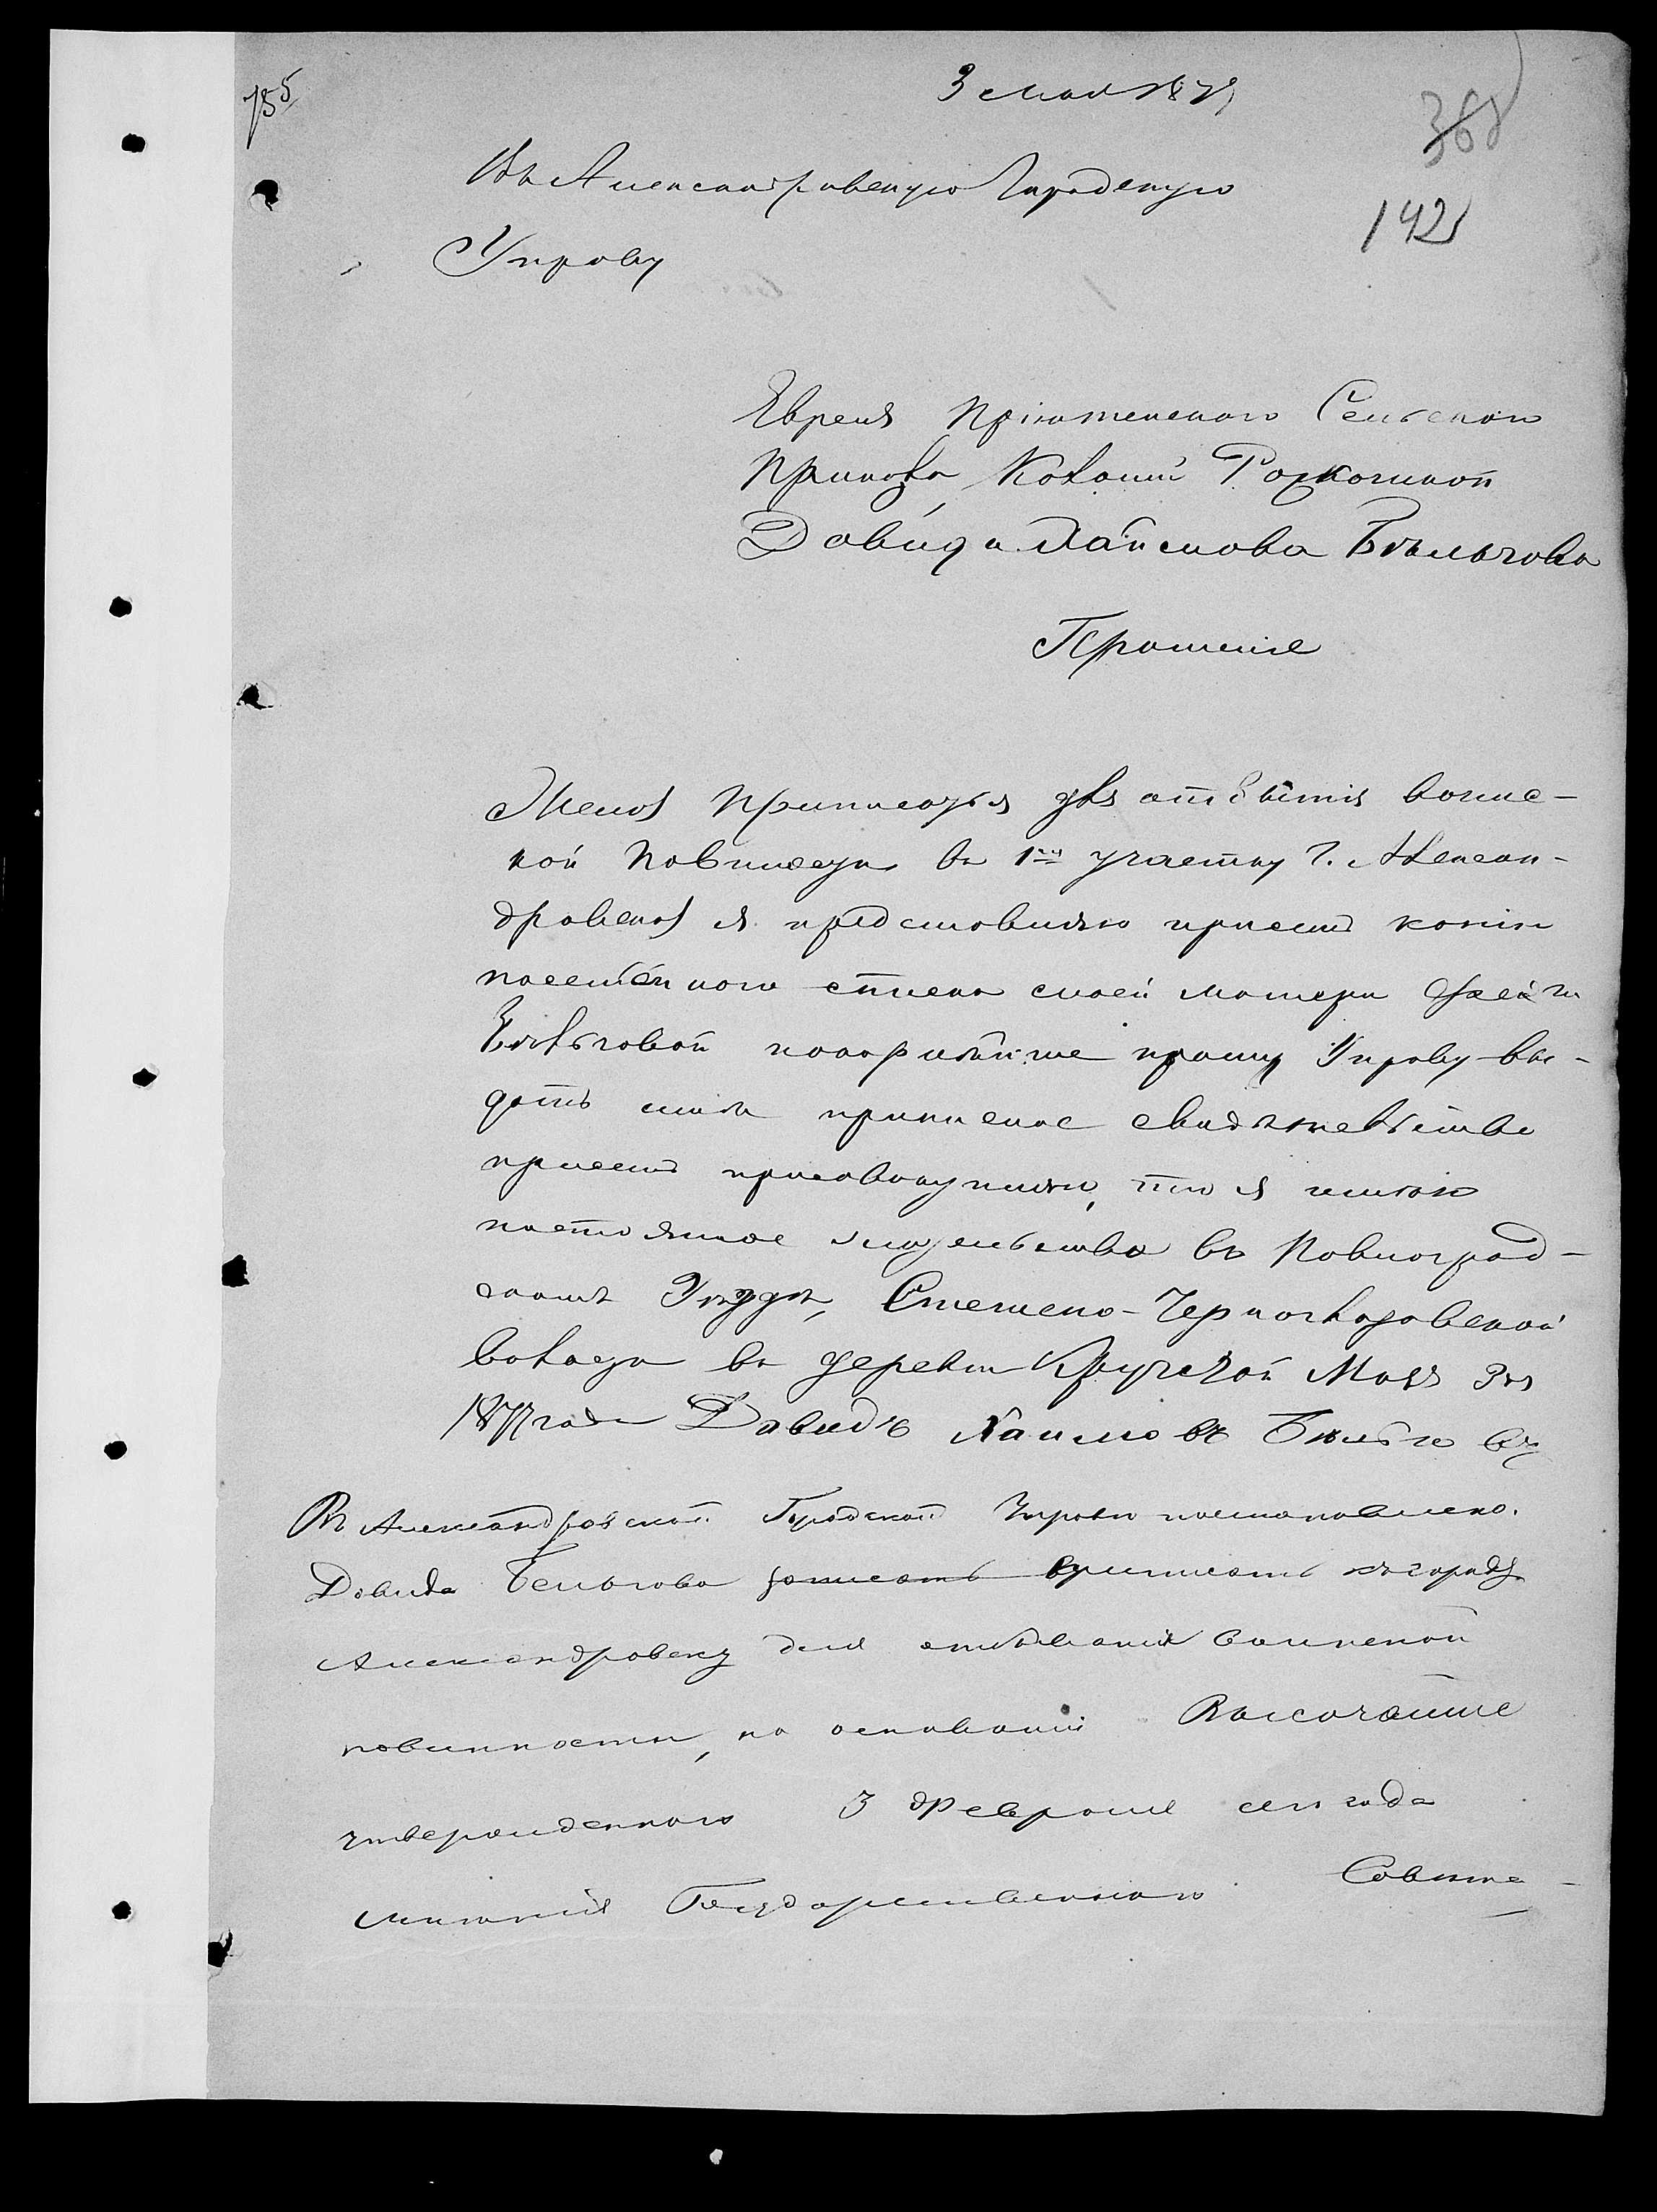 155
3 Мая 1877
368
142
Въ Александровскую Городскую
Управу
Еврея Пріютенскаго Сельскаго
Приказа, Колоніи
Давида Хаимова Бѣльгова
Прошеніе
Желая приписатся для отбытія воинс-
кой Повинности въ 1му участку г. Алексан-
дровска я представляю при семъ копію
посемейнаго списка моей матери
Бѣльговой покорнѣйше прошу Управу вы-
дать мнѣ приписное свидѣтельство
при семъ присовокупляю, что я имѣю
постоянное жительство въ Павлоград-
скомъ Уѣздѣ,
волости въ деревни Мая 3го
1877 года Давидъ Хаимовъ Бѣльговъ
Въ Александровской Городской Управѣ постановлено.
Давида Бельгова записать приписать къ городу
Александровску для отбыванія воинской
повинности, на основаніи Высочайше
утвержденнаго 3 Февраля сего года
мнѣнія Государственнаго Совѣта